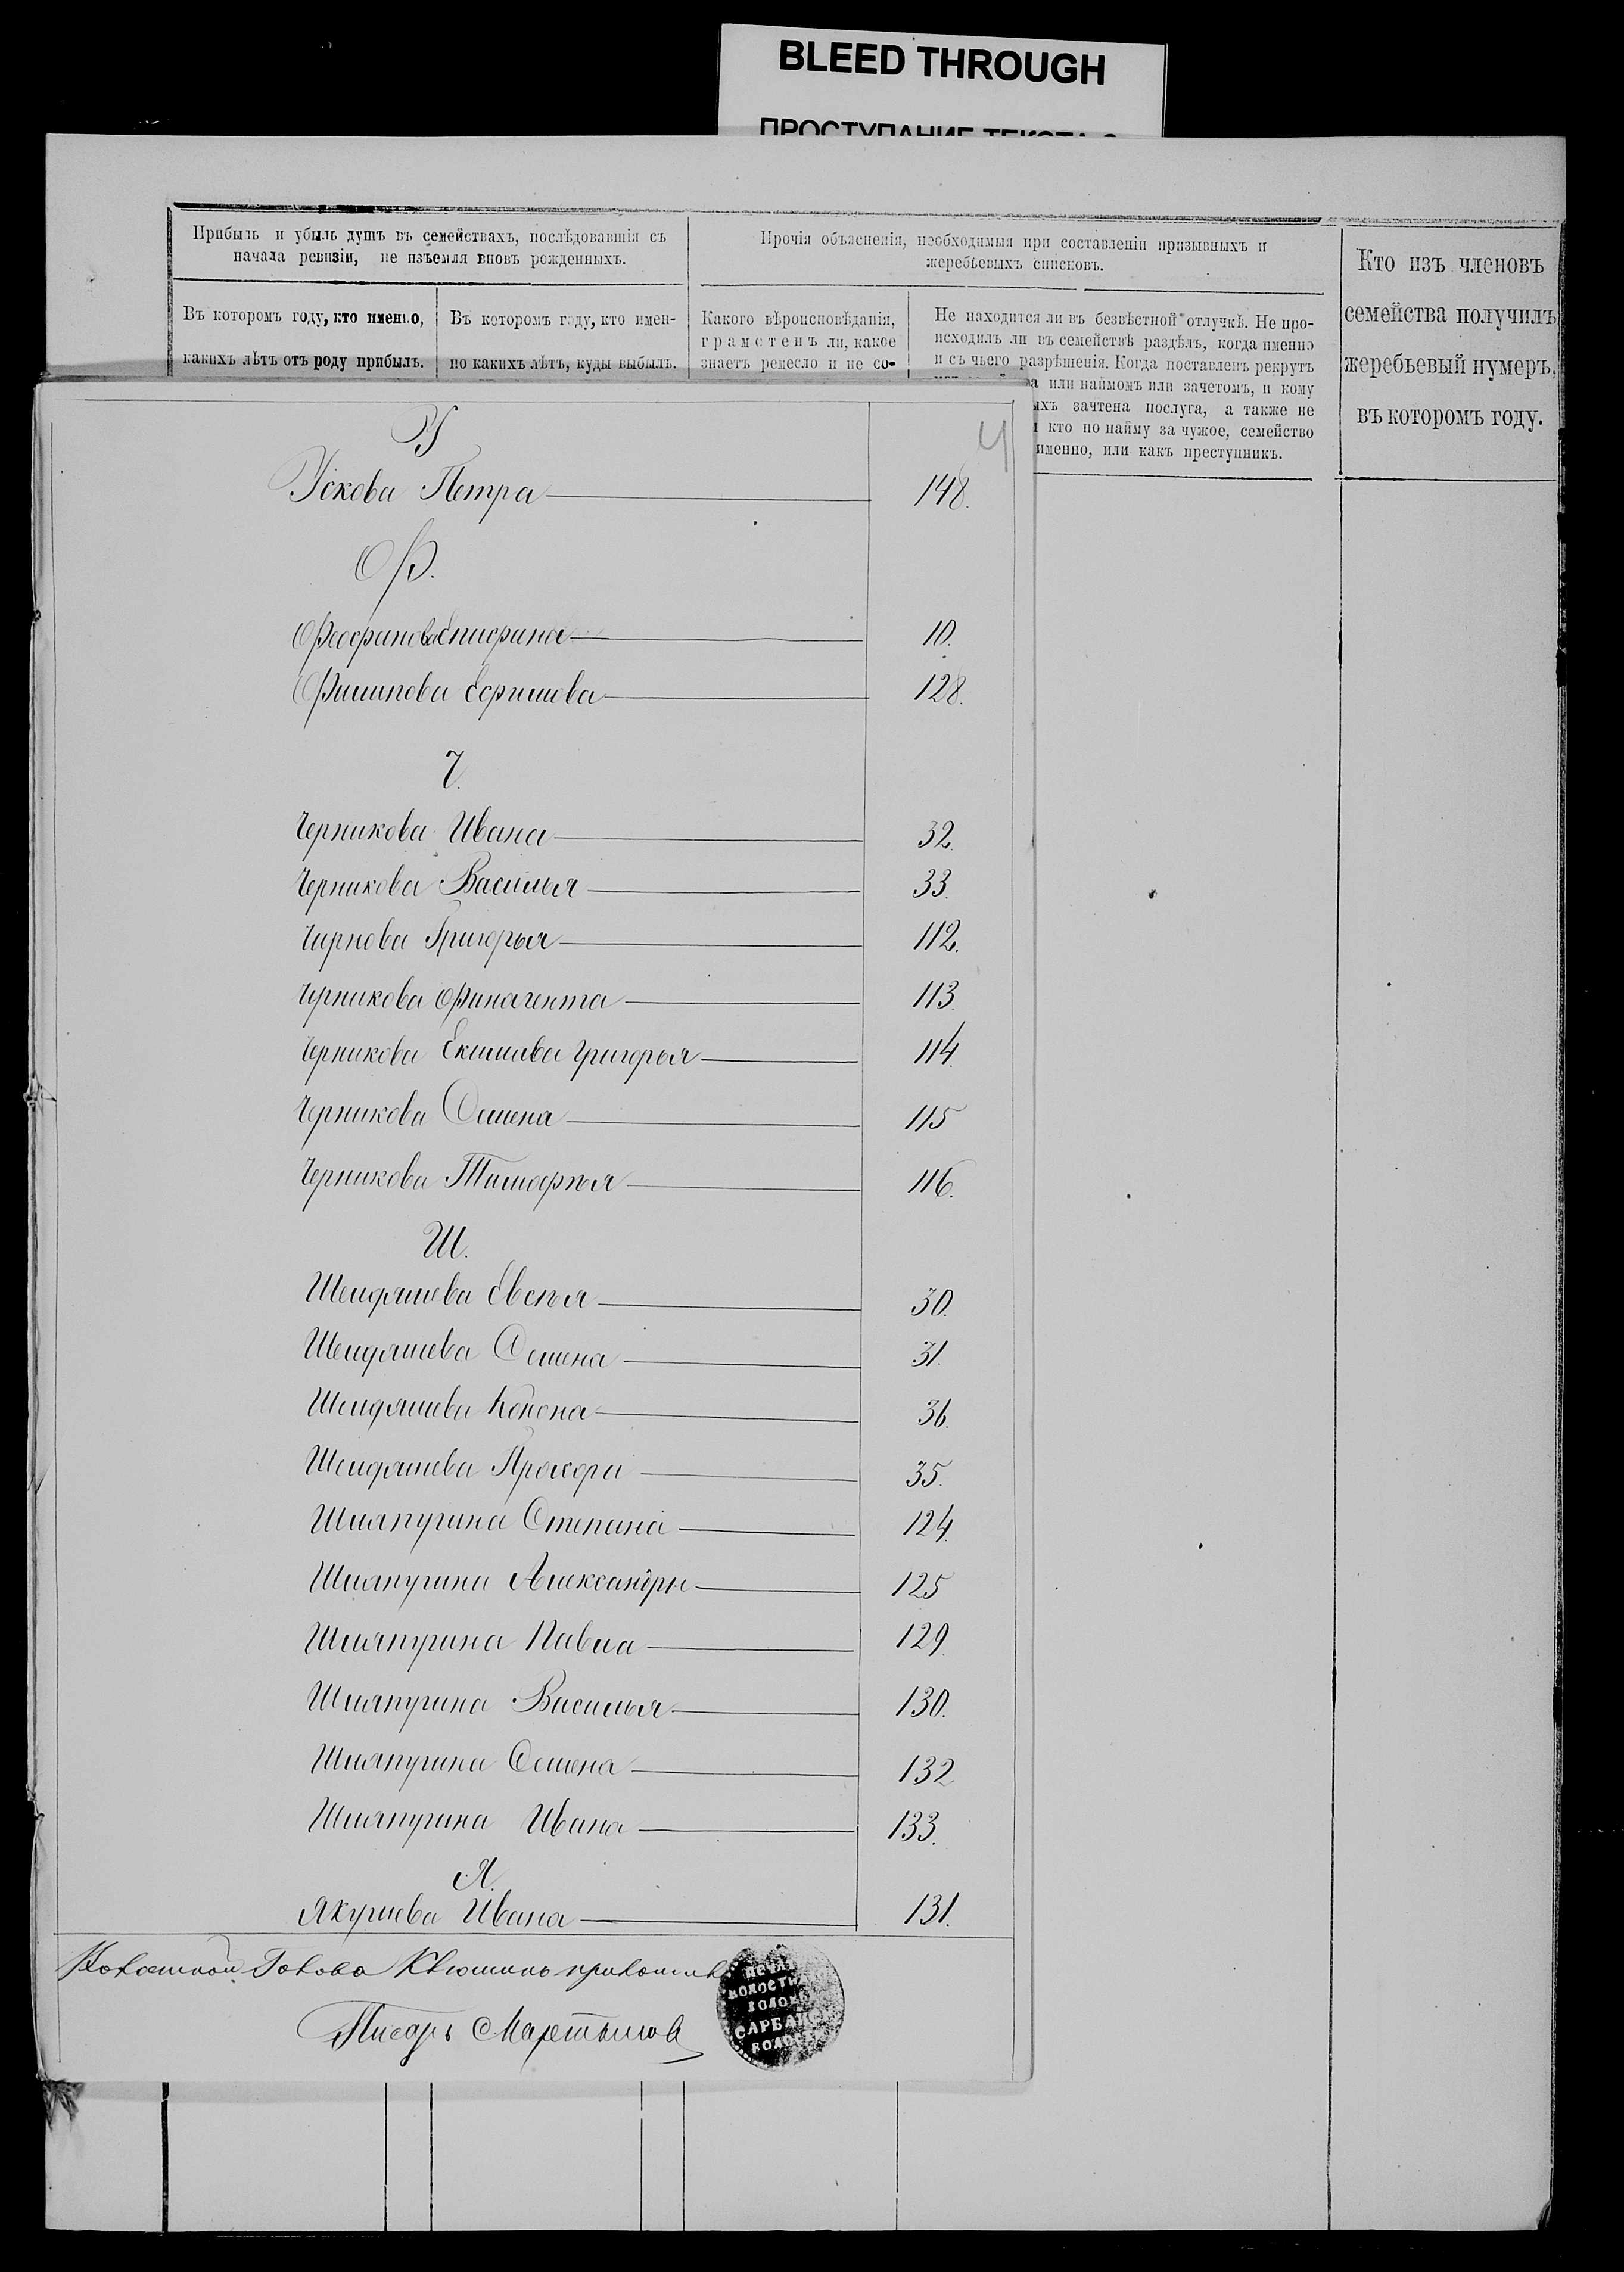 BLEED THROUGH
ПРОСТУПАНИЕ ТЕКСТА
Прибыль и убыль душъ въ семействахъ, послѣдовавшія съ
начала ревизіи, не изъемля вновь рожденныхъ.
Въ которомъ году, кто именно,
какихъ лѣтъ отъ роду прибылъ.
Въ которомъ году, кто имен-
но какихъ лѣтъ, куды выбылъ.
Прочія объясненія, необходимыя при составленіи призывныхъ и
жеребьевыхъ списковъ.
Какого вѣроисповѣданія,
грамотенъ ли, какое
знаетъ ремесло и не со-
Не находится ли въ безвѣстной отлучкѣ. Не про-
исходилъ ли въ семействѣ раздѣлъ, когда именно
и съ чьего разрѣшенія. Когда поставленъ рекрутъ
или наймомъ или зачетомъ, и кому
ыхъ зачтена послуга, а также не
кто по найму за чужое, семейство
именно, или какъ преступникъ.
Кто изъ членовъ
семейства получилъ
жеребьевый нумеръ,
въ которомъ году.
4
У
Ускова Петра 148.
Ф.
Феофанова Епифана 10.
Филипова 128.
Ч.
Черникова Ивана 32.
Черникова Василья 33.
Чирнова Григорья 112.
Черникова Финагента 113.
Черникова Григорья 114.
Черникова Семена 115
Черникова Тимофѣя 116.
Ш.
Шендяшева Евсѣя 30.
Шендяшева Семена 31.
Шендяшева Конона 36.
Шендяшева Прохора 35.
Шляпугина Степана 124.
Шляпугина Александры 125
Шляпугина Павла 129.
Шляпугина Василья 130.
Шляпугина Семена 132
Шляпугина Ивана 133.
Я.
Якушева Ивана 131.
Волостной Голова
Писарь Мартыновъ
САРБАЙС